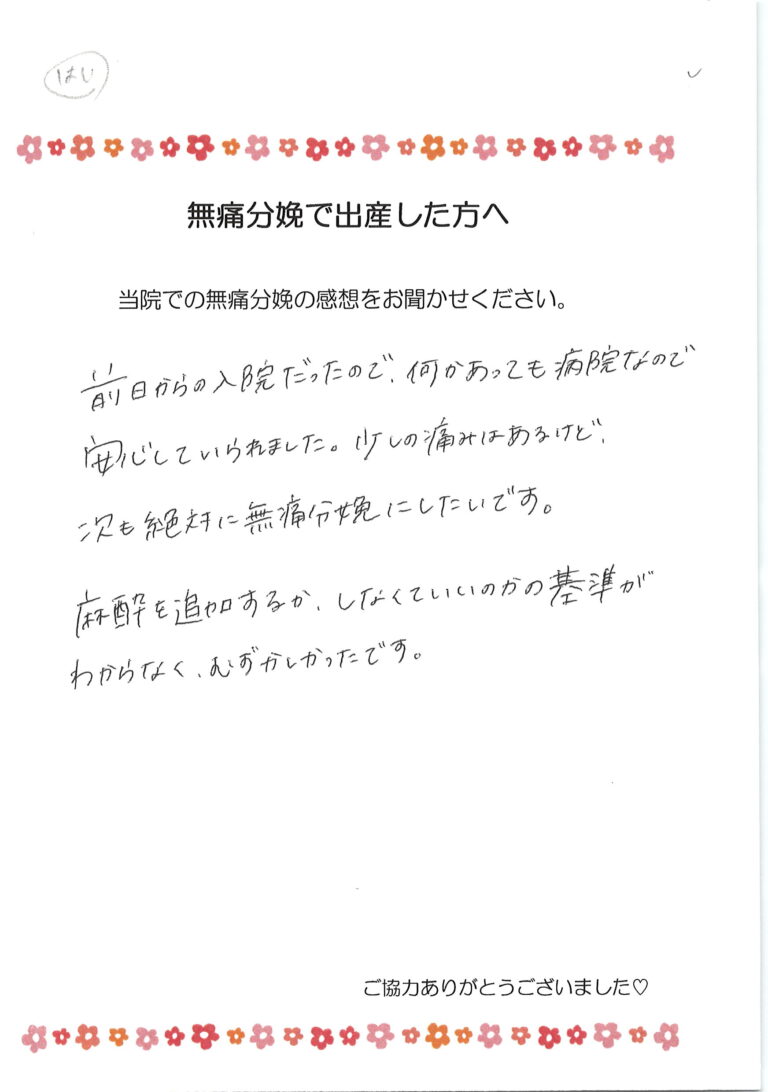 はい
無痛分娩で出産した方へ
当院での無痛分娩の感想をお聞かせください。
前日からの入院だったので、何かあっても病院なので
安心していられました。少しの痛みはあるけど、
次も絶対に無痛分娩にしたいです。
麻酔を追加するか、しなくていいのかの基準が
わからなく、むずかしかったです。
ご協力ありがとうございました♡